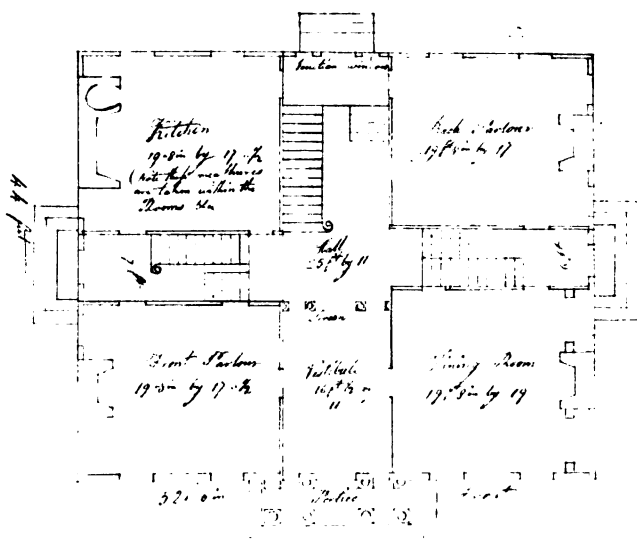 Kitchen
19-8in by 17-½
(Note these measures
are taken within the
Rooms
Back Parlour
19ft 8in by 17
44 feet
Hall
25ft by 11
7 ft
6 ft
Screen
Front Parlour
19-8in by 17-½
Vestibule
16ft ½ by
11
Dining Room
19ft 8in by 19
52-0in
Portico
Front